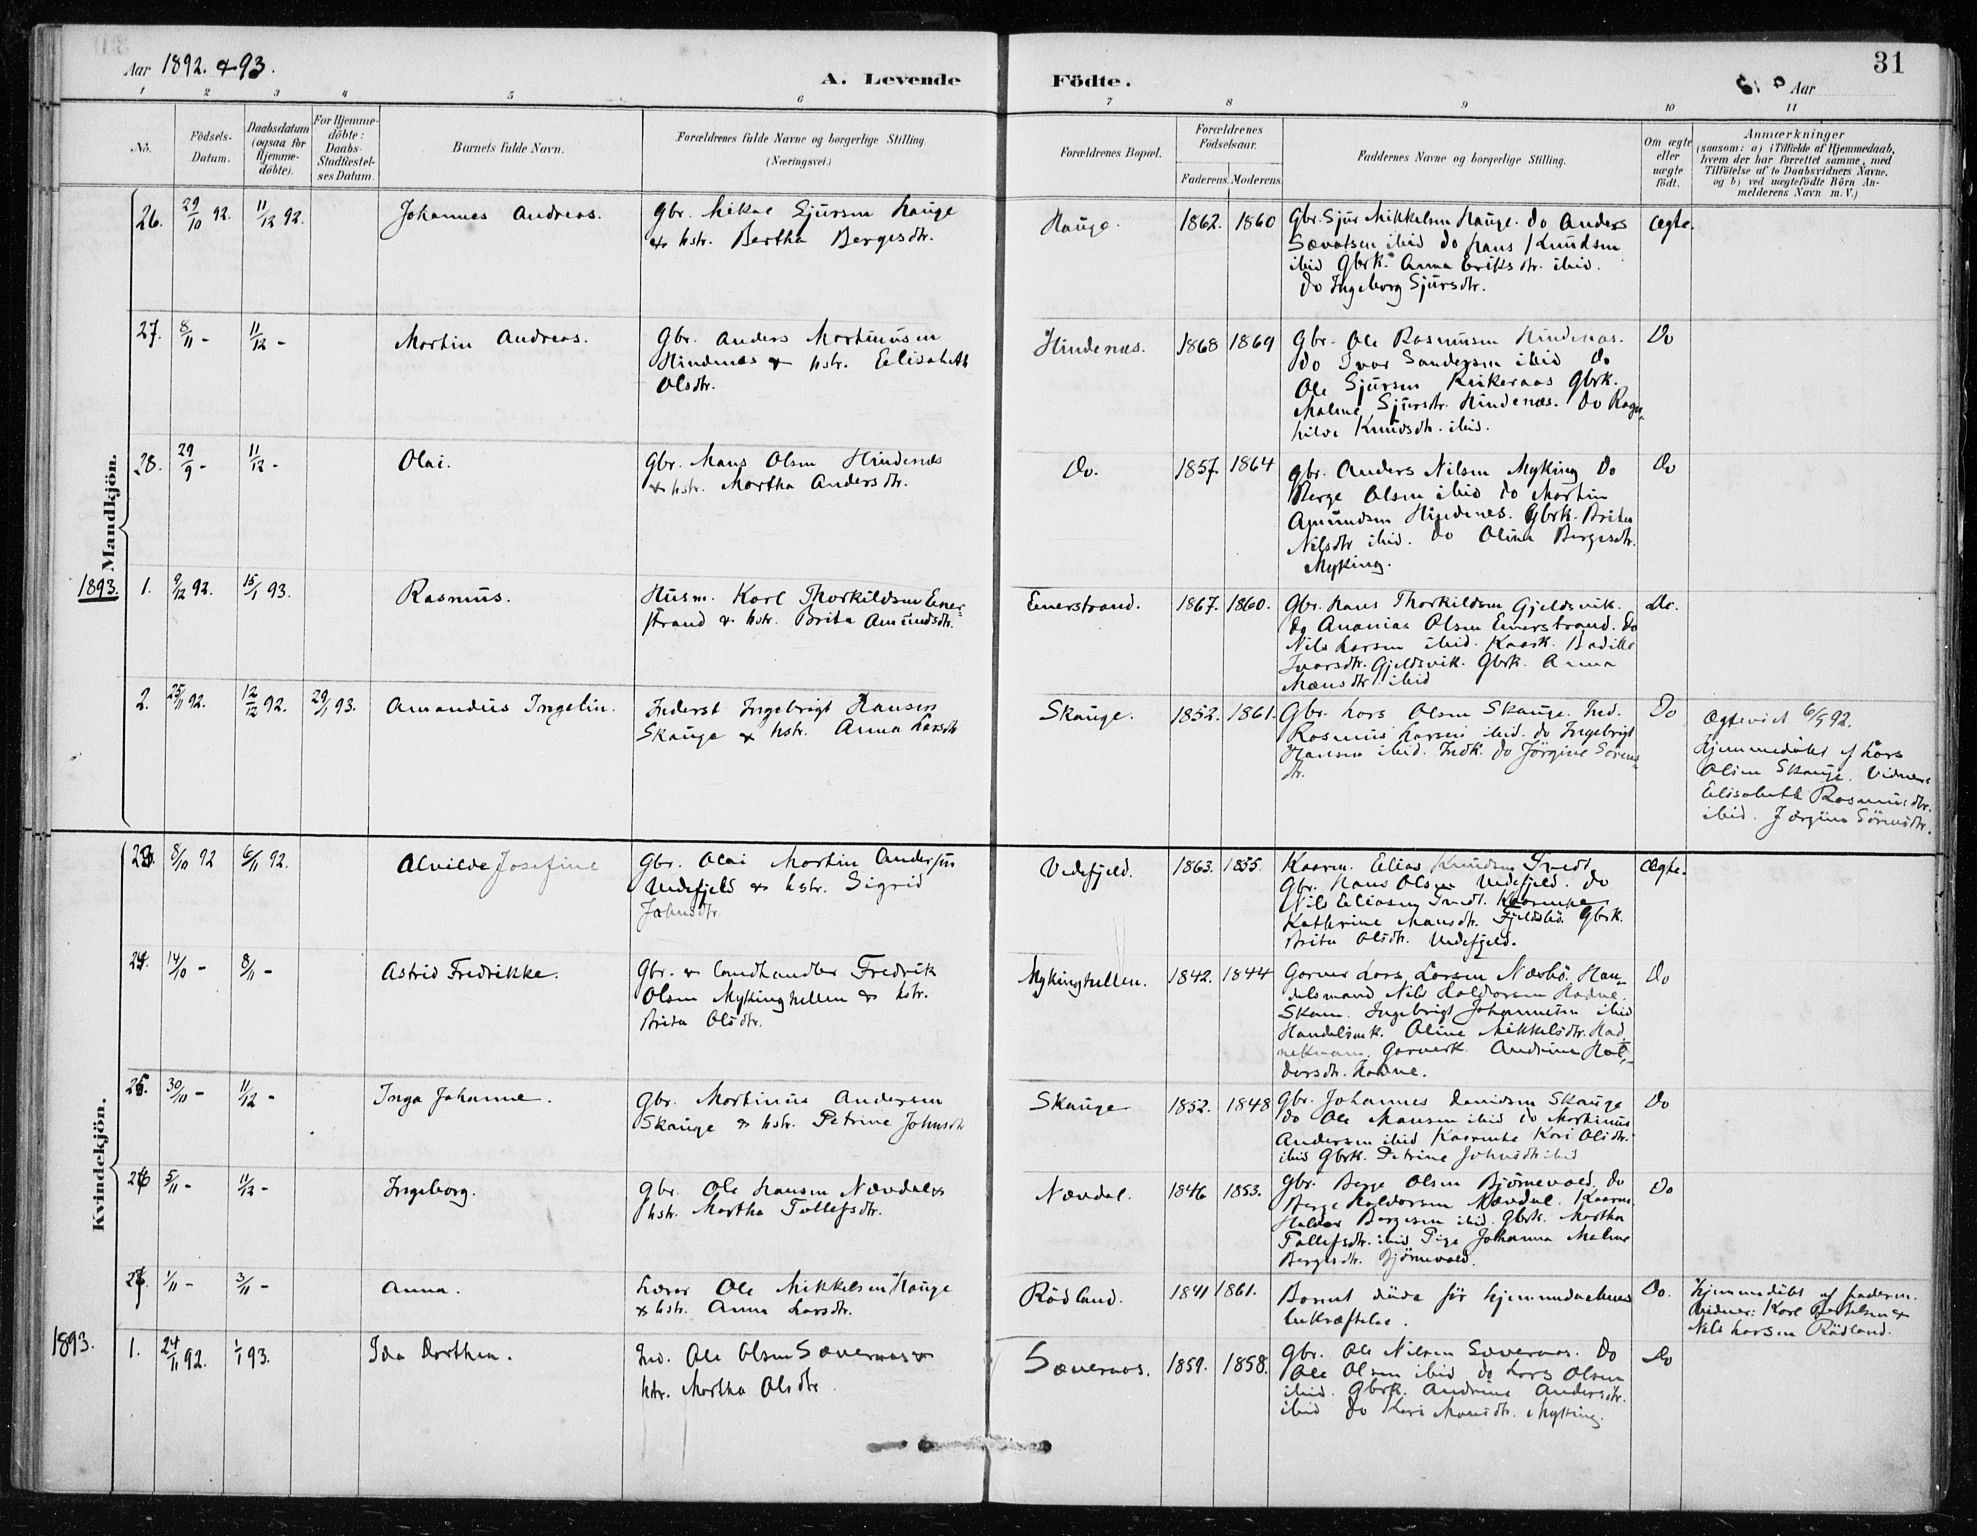 31
Aar 1892. & 93.
A. Levende Födte.
Aar
1 2 3 4 5 6 7 8 9 10 11
No.
Födsels-Datum.
Daabsdatum (ogsaa for Hjemme-döbte).
For Hjemme-döbte: Daabs-Stadfæstel-ses Datum.
Barnets fulde Navn.
Forældrenes fulde Navne og borgerlige Stilling. (Næringsvei.)
Forældrenes Bopæl.
Forældrenes Födselsaar.
Faderens. Moderens.
Faddernes Navne og borgerlige Stilling.
Om ægte eller uægte födt.
Anmærkninger
(saasom: a) i Tilfælde af Hjemmedaab, hvem der har forrettet samme, med Tilföielse af to Daabsvidners Navne, og b) ved uægtefödte Börn An-melderens Navn m.V.)
Mandkjön.
26. 29/10 92. 11/12 92. Johannes Andreas.
Gbr. Mikal Sjursen Hauge
& hstr. Bertha Bergesdtr.
Hauge. 1862. 1860
Gbr. Sjur Mikkelsen Hauge. Do Anders
Sævatsen ibid Do Hans Knudsen
ibid Gbrk. Anna Eriksdtr. ibid.
Do Ingeborg Sjursdtr.
Ægte.
27. 8/11 - 11/12 - Martin Andreas.
Gbr. Anders Martinusen
Hindenæs & hstr. Eelisabeth
Olsdtr.
Hindenæs. 1868 1869
Gbr. Ole Rasmusen Hindenæs.
Do Ivar Sandersen ibid Do
Ole Sjursen Gbrk.
Malene Sjursdtr. Hindenæs. Do Ragn-
hilde Knudsdtr. ibid.
Do
28. 29/9 - 11/12 - Olai.
Gbr. Mans Olsen Hindenæs
& hstr. Martha Andersdtr.
Do. 1857. 1864
Gbr. Anders Nilsen Myking Do
Berge Olsen ibid Do Martin
Amundsen Hindenes. Gbrk. Britha
Nilsdtr ibid. Do Olina Bergesdtr.
Myking.
Do
1893.
1. 9/12 92. 15/1 93. Rasmus.
Husm. Karl Thorkildsen Emer-
strand & hstr. Brita Amundsdtr.
Emerstrand. 1867. 1860.
Gbr. Hans Thorkildsen Gjeldsvik.
Do Ananias Olsen Emerstrand. Do
Nils Larsen ibid. Kaark. Bodille
Ivarsdtr. Gjeldsvik. Gbrk. Anna
Mansdtr ibid
Do.
2. 25/11 92. 12/12 92. 29/1 93. Amandus Ingelin.
Inderst Ingebrigt Hansen
Skauge & hstr. Anna Larsdtr
Skauge. 1852. 1861.
Gbr. Lars Olsen Skauge. Ind.
Rasmus Larsen ibid. Do Ingebrigt
Hansen ibid. Indk. Do Jørgine Sørens-
dtr.
Do
Ægteviet 6/5 92.
Hjemmedøbt af Lars
Olsen Skauge. Vidner:
Elisabeth Rasmusdtr.
ibid. Jørgine Sörensdtr.
Kvindekjön.
23. 8/10 92 6/11 92. Alvilde Josefine
Gbr. Olai Martin Andersen
Vedefjeld & hstr. Sigrid
Johnsdtr.
Vedefjeld. 1863. 1855.
Kaarm. Elias Knudsen Tvedt
Gbr. Hans Olsen Vedefjeld. Do
Nils Eliasen Tvedt. Kaarenke
Kathrine Mansdtr. Fjeldsbö. Gbrk.
Brita Olsdtr. Vedefjeld.
Ægte.
24. 14/10 - 8/11 - Astrid Fredrikke.
Gbr. & Landhandler Fredrik
Olsen Mykingtullen & hstr.
Brita Olsdtr.
Mykingtullen. 1842. 1844
Garver Lars Larsen Næsbö. Han-
delsmand Nils Haldorsen Hadne.
Skom. Ingebrigt Johannesen ibid
Handelsmk. Oline Mikkelsdtr. Had-
nekvam. Garverk. Andrine Hal-
dorsdtr. Hadne.
Do
25. 30/10 - 11/12 - Inga Johanne.
Gbr. Martinus Andersen
Skauge & hstr. Petrine Johnsdtr
Skauge 1852. 1848
Gbr. Johannes Davidsen Skauge
Do Ole Mansen ibid Do Martinus
Andersen ibid Kaarenke Kari Olsdtr.
ibid Gbrk. Petrine Johnsdtr ibid
Do
26 5/11 - 11/12 - Ingeborg.
Gbr. Ole Hansen Nævdal &
hstr. Martha Tollefsdtr.
Nævdal. 1846 1853.
Gbr. Berge Olsen Bjørnevold. Do
Berge Haldorsen Nævdal. Kaarm.
Haldor Bergesen ibid. Gbrk. Martha
Tollefsdtr. ibid Pige Johanna Malene
Bergesdtr. Bjørnevold.
Do
27. 1/11 - 3/11 - Anna.
Lærer Ole Mikkelsen Hauge
& hstr. Anna Larsdtr.
Rödland. 1841 1861.
Barnet döde för hjemmedaabens
bekræftelse.
Do.
Hjemmedøbt af faderen.
Vidner: Karl Bertelsen &
Nils Larsen Rödland.
1893.
1. 24/11 92. 1/1 93. Ida Dorthea.
Ind. Ole Olsen Sævernæs &
hstr. Martha Olsdtr.
Sævernæs. 1859. 1858.
Gbr. Ole Nilsen Sævernæs. Do
Ole Olsen ibid Do Lars Olsen
ibid. Gbrk. Andrine Andersdtr.
ibid Do Kari Mansdtr. Myking.
Do